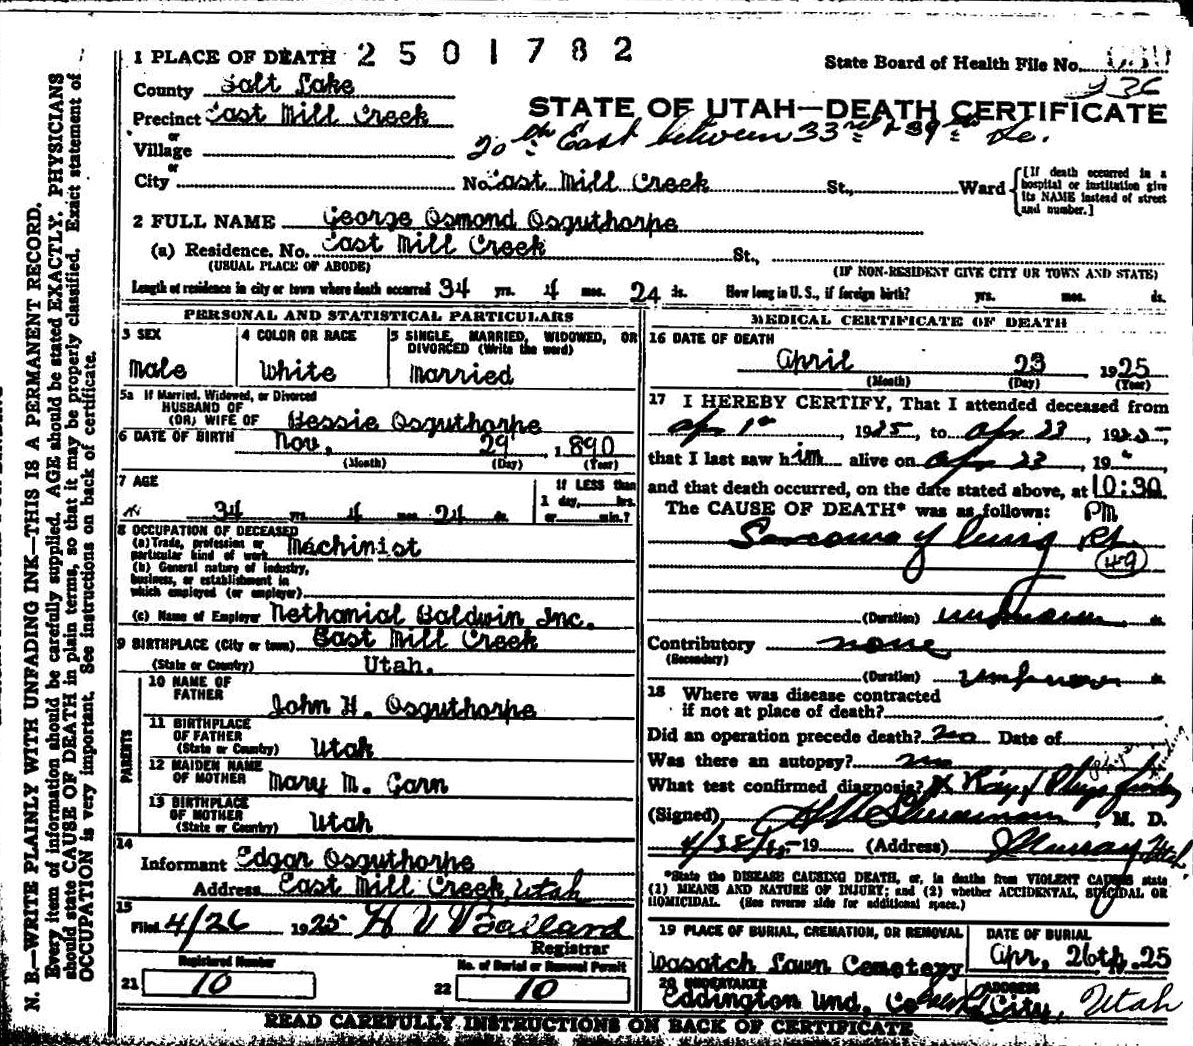 1 PLACE OF DEATH 2501782
State Board of Health File No.
236
County Salt Lake
STATE OF UTAH—DEATH CERTIFICATE
Precinct East Mill Creek
20th East between 33rd & 39th So.
or
Village
or
City No. East Mill Creek St., Ward
[If death occurred in a hospital or institution give its NAME instead of street and number.]
2 FULL NAME George Osmond Osguthorpe
(a) Residence. No. East Mill Creek St.,
(USUAL PLACE OF ABODE) (IF NON-RESIDENT GIVE CITY OR TOWN AND STATE)
Length of residence in city or town where death occurred 34 yrs. 4 mos. 24 ds. How long in U. S., if foreign birth? yrs. mos. ds.
PERSONAL AND STATISTICAL PARTICULARS
3 SEX 4 COLOR OR RACE 5 SINGLE, MARRIED, WIDOWED, OR DIVORCED (Write the word)
Male White Married
5a If Married, Widowed, or Divorced
HUSBAND OF
(OR) WIFE OF Bessie Osguthorpe
6 DATE OF BIRTH Nov. 29 1890
(Month) (Day) (Year)
7 AGE If LESS than
1 day, hrs.
34 yrs. 4 mos. 24 ds. or min.?
8 OCCUPATION OF DECEASED
(a) Trade, profession or particular kind of work Machinist
(b) General nature of industry, business, or establishment in which employed (or employer)
(c) Name of Employer Nethanial Baldwin Inc.
9 BIRTHPLACE (City or town) East Mill Creek
(State or Country) Utah.
PARENTS
10 NAME OF FATHER John H. Osguthorpe
11 BIRTHPLACE OF FATHER (State or Country) Utah
12 MAIDEN NAME OF MOTHER Mary M. Garn
13 BIRTHPLACE OF MOTHER (State or Country) Utah
14
Informant Edgar Osguthorpe
Address East Mill Creek, Utah
15
Filed 4/26 1925 H V Bailand
Registrar
21 Registered Number 10 22 No. of Burial or Removal Permit 10
MEDICAL CERTIFICATE OF DEATH
16 DATE OF DEATH
April 23 1925
(Month) (Day) (Year)
17 I HEREBY CERTIFY, That I attended deceased from
Apr 1st, 1925, to Apr 23, 1925,
that I last saw him alive on Apr 23, 19
and that death occurred, on the date stated above, at 10:30
The CAUSE OF DEATH* was as follows: PM
Sarcoma of lung Rt
49
(Duration) unknown ds.
Contributory none
(Secondary)
(Duration) unknown ds.
18 Where was disease contracted
if not at place of death?
Did an operation precede death? no Date of
Was there an autopsy? no
What test confirmed diagnosis? X Ray & Phys finding
(Signed), M. D.
19 (Address) Murray Utah
*State the DISEASE CAUSING DEATH, or, in deaths from VIOLENT CAUSES state
(1) MEANS AND NATURE OF INJURY; and (2) whether ACCIDENTAL, SUICIDAL OR
HOMICIDAL. (See reverse side for additional space.)
19 PLACE OF BURIAL, CREMATION, OR REMOVAL DATE OF BURIAL
Wasatch Lawn Cemetery Apr, 26th. 25
20 UNDERTAKER ADDRESS
Eddington Und, Co City, Utah
READ CAREFULLY INSTRUCTIONS ON BACK OF CERTIFICATE
N. B.—WRITE PLAINLY WITH UNFADING INK—THIS IS A PERMANENT RECORD.
Every item of information should be carefully supplied. AGE should be stated EXACTLY. PHYSICIANS
should state CAUSE OF DEATH in plain terms, so that it may be properly classified. Exact statement of
OCCUPATION is very important. See instructions on back of certificate.